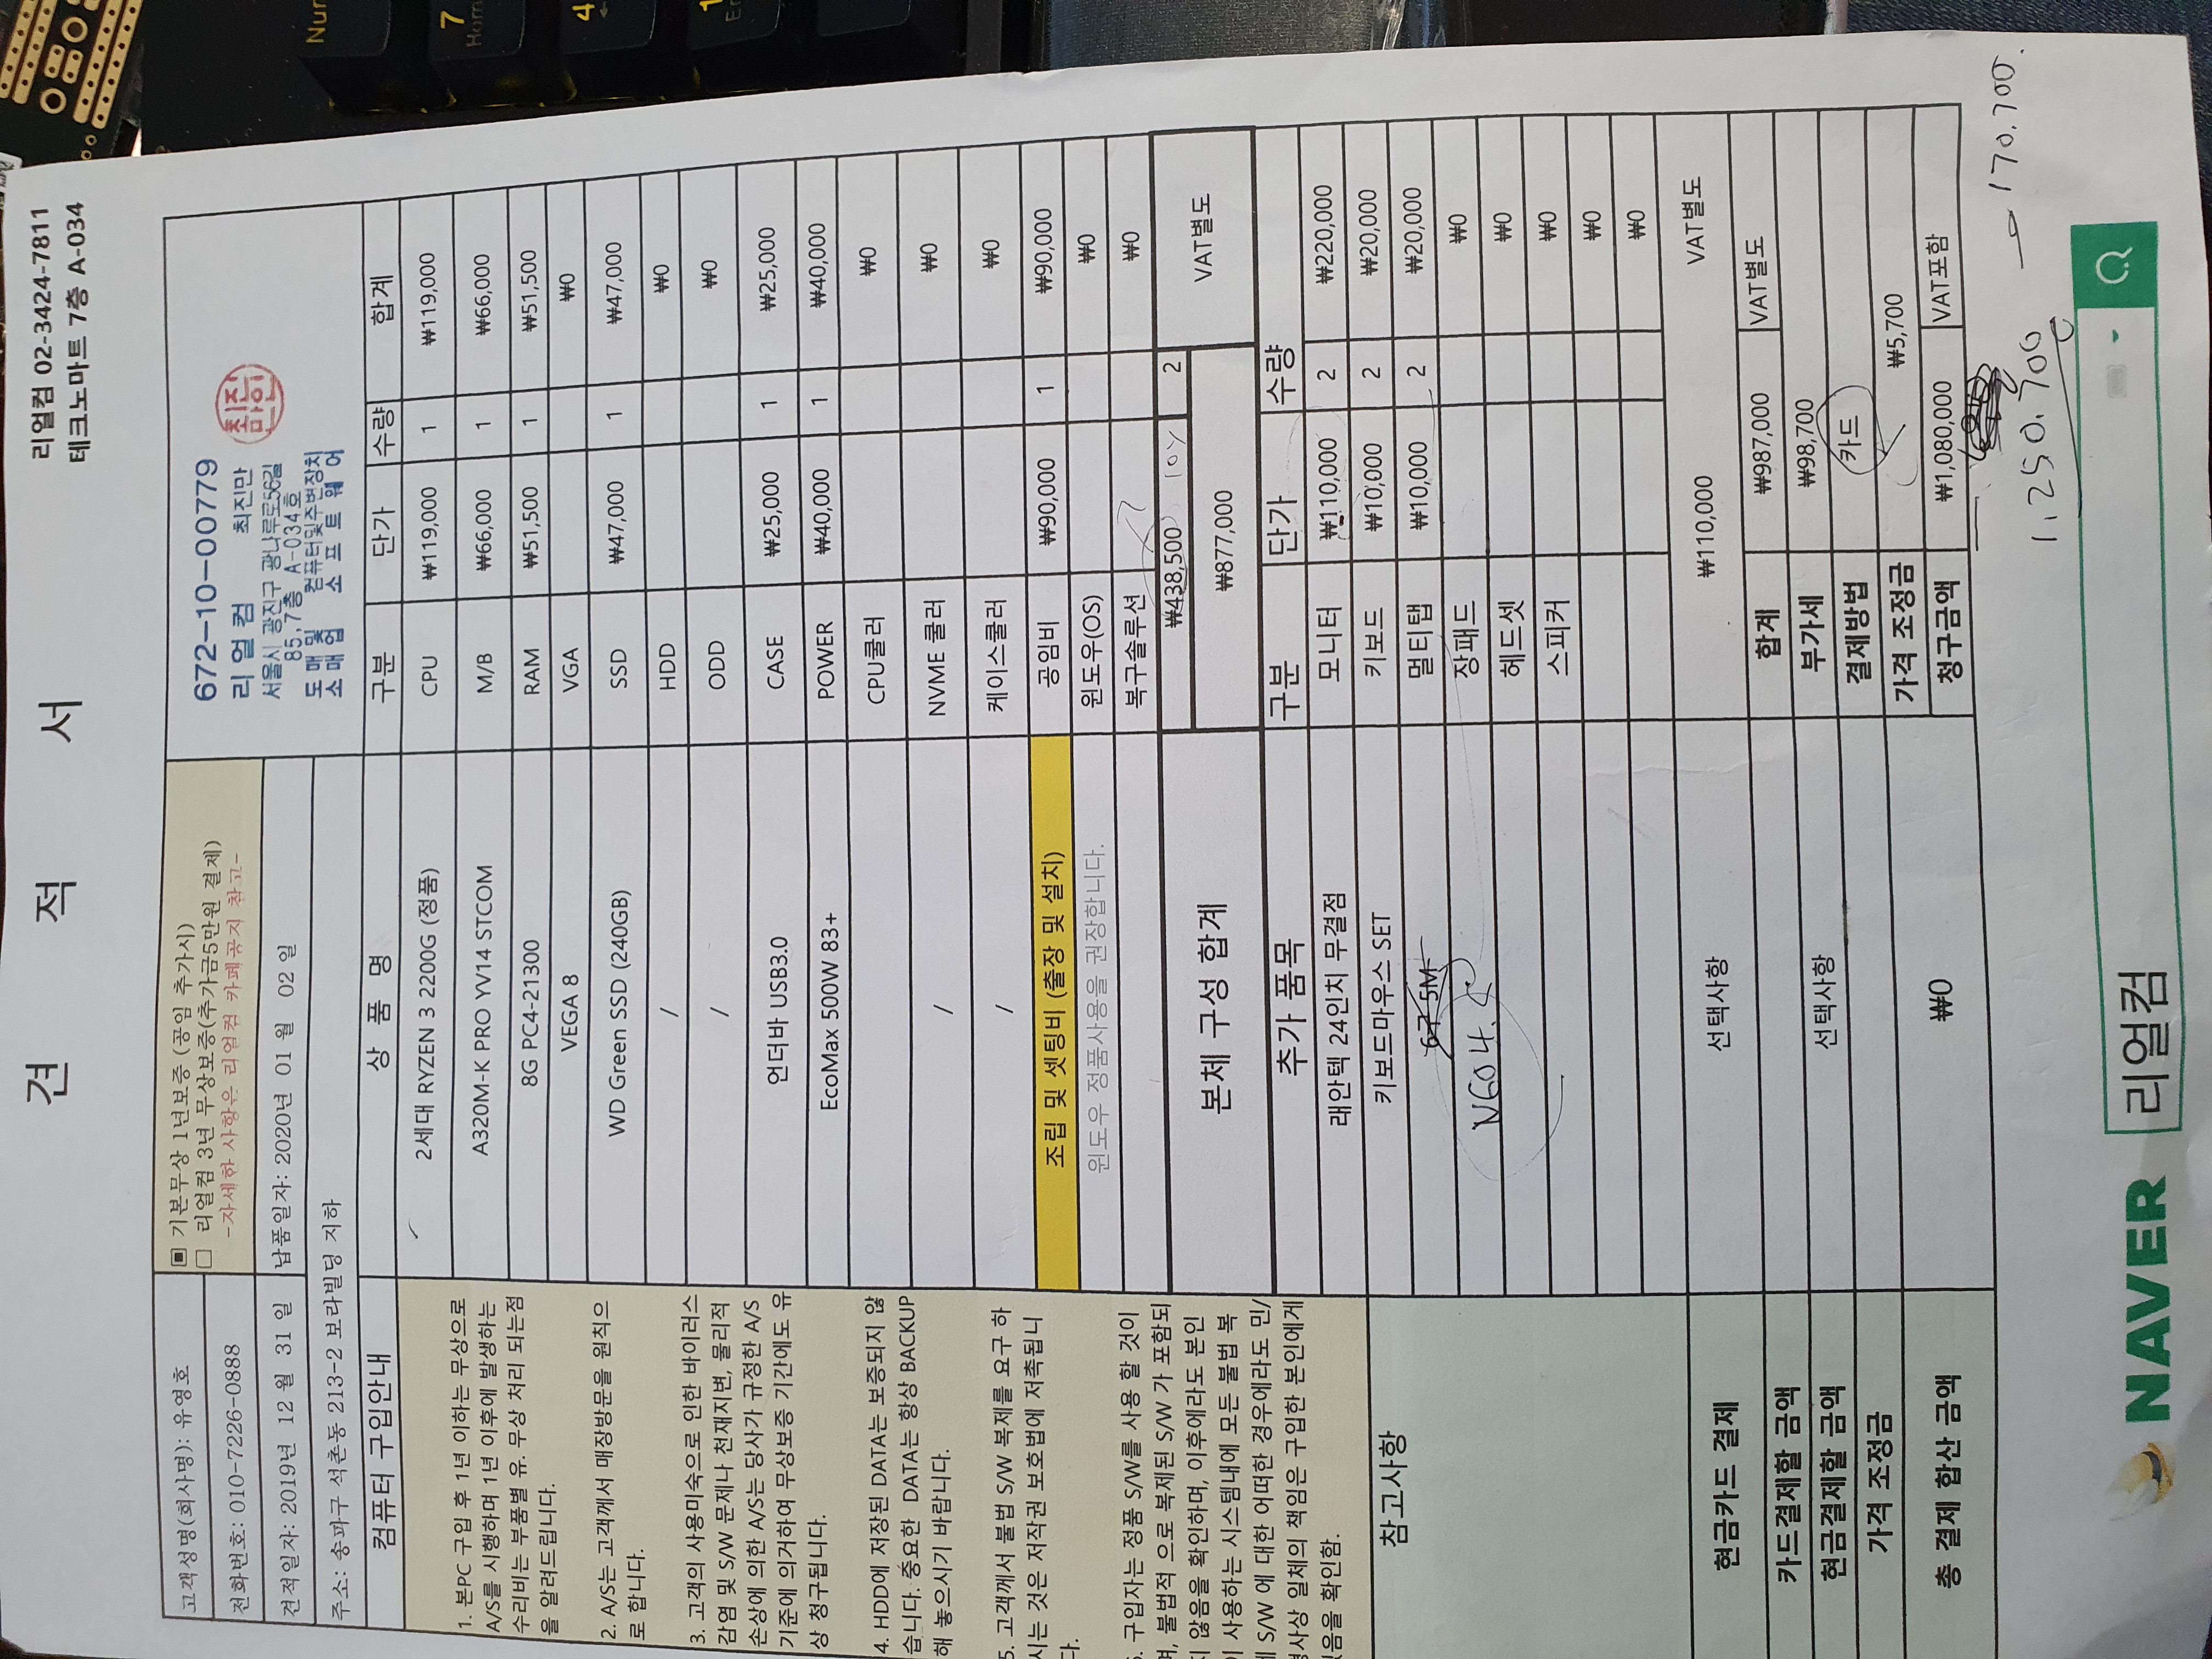 견 적 서
리얼컴 02-3424-7811
테크노마트 7층 A-034
고객성명(회사명): 유영호
■ 기본무상 1년보증 (공임 추가시)
□ 리얼컴 3년 무상보증(추가금5만원 결제)
-자세한 사항은 리얼컴 카페공지 참고-
전화번호: 010-7226-0888
견적일자: 2019년 12 월 31 일
납품일자: 2020년 01 월 02 일
주소: 송파구 석촌동 213-2 보라빌딩 지하
672-10-00779
리얼컴 최진만
서울시 광진구 광나루로56길
85,7층 A-034호
도매및 컴퓨터및주변장치
소매업 소프트웨어
최진만인
컴퓨터 구입안내 상 품 명 구분 단가 수량 합계
2세대 RYZEN 3 2200G (정품) CPU ₩119,000 1 ₩119,000
A320M-K PRO YV14 STCOM M/B ₩66,000 1 ₩66,000
8G PC4-21300 RAM ₩51,500 1 ₩51,500
VEGA 8 VGA ₩0
WD Green SSD (240GB) SSD ₩47,000 1 ₩47,000
/ HDD ₩0
/ ODD ₩0
언더바 USB3.0 CASE ₩25,000 1 ₩25,000
EcoMax 500W 83+ POWER ₩40,000 1 ₩40,000
CPU쿨러 ₩0
/ NVME 쿨러 ₩0
/ 케이스쿨러 ₩0
조립 및 셋팅비 (출장 및 설치) 공임비 ₩90,000 1 ₩90,000
윈도우 정품사용을 권장합니다. 윈도우(OS) ₩0
복구솔루션 ₩0
본체 구성 합계 ₩438,500 2 VAT별도
₩877,000
1. 본PC 구입 후 1년 이하는 무상으로
A/S를 시행하며 1년 이후에 발생하는
수리비는 부품별 유. 무상 처리 되는점
을 알려드립니다.
2. A/S는 고객께서 매장방문을 원칙으
로 합니다.
3. 고객의 사용미숙으로 인한 바이러스
감염 및 S/W 문제나 천재지변, 물리적
손상에 의한 A/S는 당사가 규정한 A/S
기준에 의거하여 무상보증 기간에도 유
상 청구됩니다.
4. HDD에 저장된 DATA는 보증되지 않
습니다. 중요한 DATA는 항상 BACKUP
해 놓으시기 바랍니다.
5. 고객께서 불법 S/W 복제를 요구 하
시는 것은 저작권 보호법에 저촉됩니
다.
구입자는 정품 S/W를 사용 할 것이
며, 불법적 으로 복제된 S/W 가 포함되
지 않음을 확인하며, 이후에라도 본인
이 사용하는 시스템내에 모든 불법 복
제 S/W 에 대한 어떠한 경우에라도 민/
형사상 일체의 책임은 구입한 본인에게
있음을 확인함.
추가 품목 구분 단가 수량
래안텍 24인치 무결점 모니터 ₩110,000 2 ₩220,000
키보드마우스 SET 키보드 ₩10,000 2 ₩20,000
6구 5M 멀티탭 ₩10,000 2 ₩20,000
장패드 ₩0
헤드셋 ₩0
스피커 ₩0
₩0
₩0
참고사항
현금카드 결제 선택사항 ₩110,000 VAT별도
합계 ₩987,000 VAT별도
카드결제할 금액 부가세 ₩98,700
현금결제할 금액 선택사항 결제방법 카드
가격 조정금 가격 조정금 ₩5,700
총 결제 합산 금액 ₩0 청구금액 ₩1,080,000 VAT포함
1,250,700
170,700
NAVER 리얼컴
Num
7
Hom
4